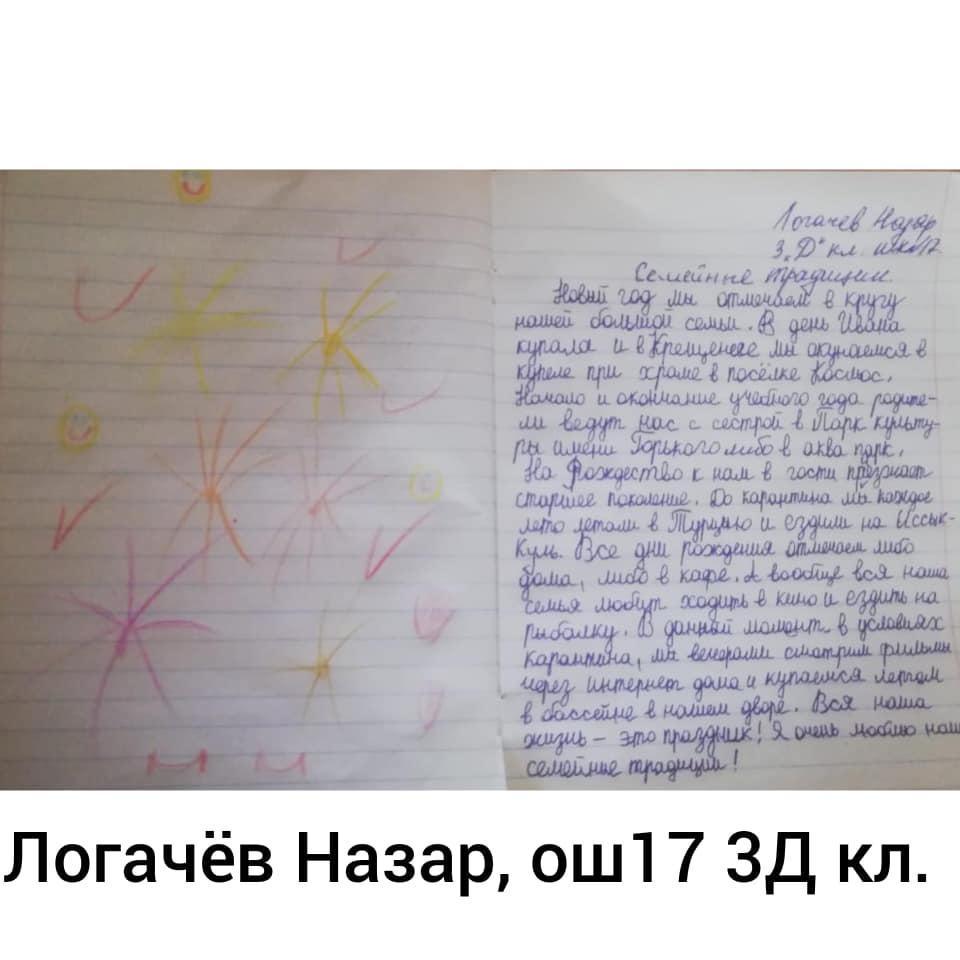 Логачев Назар
3 „Д“ кл. шк 17
Семейные традиции.
Новый год мы отмечаем в кругу
нашей большой семьи. В день Ивана
купала и в Крещение мы окунаемся в
купеле при храме в посёлке Космос.
Начало и окончание учебного года родите-
ли ведут нас с сестрой в Парк культу-
ры имени Горького либо в аква парк.
На Рождество к нам в гости приезжает
старшее поколение. До карантина мы каждое
лето летали в Турцию и ездили на Иссык-
Куль. Все дни рождения отмечаем либо
дома, либо в кафе. А вообще вся наша
семья любит ходить в кино и ездить на
рыбалку. В данный момент в условиях
карантина, мы вечерами смотрим фильмы
через интернет дома и купаемся летом
в бассейне в нашем дворе. Вся наша
жизнь – это праздник! Я очень люблю наши
семейные традиции!
Логачёв Назар, ош17 3Д кл.